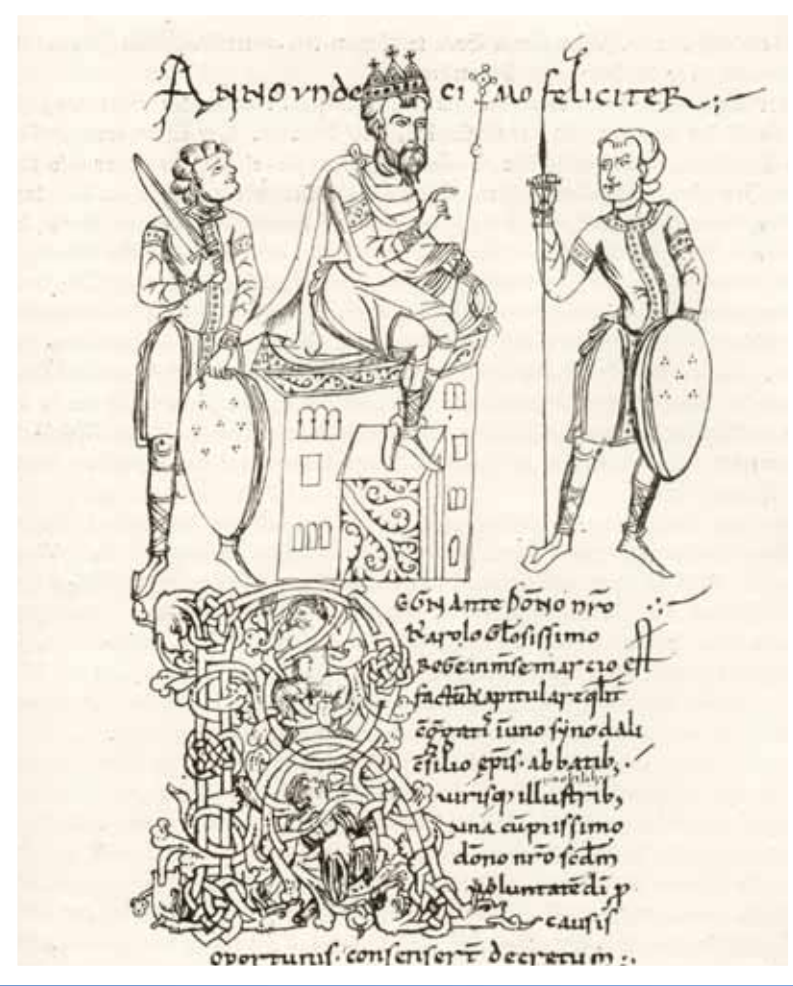 ANNO VNDECIMO FELICITER
REGNANTE DÕNO nrō
Karolo Głosissimo
ROGE in m̄se marcio ē
factū Kapitulare qłit
c̄g̃gatis īuno synodali
c̄silio ep̄is· abbatib;
uirisq; illustrib;
unā cū piissimo
dōno nrō scd̄m
uoluntatē dī p
causis
oportunis· consenser̄t decretum